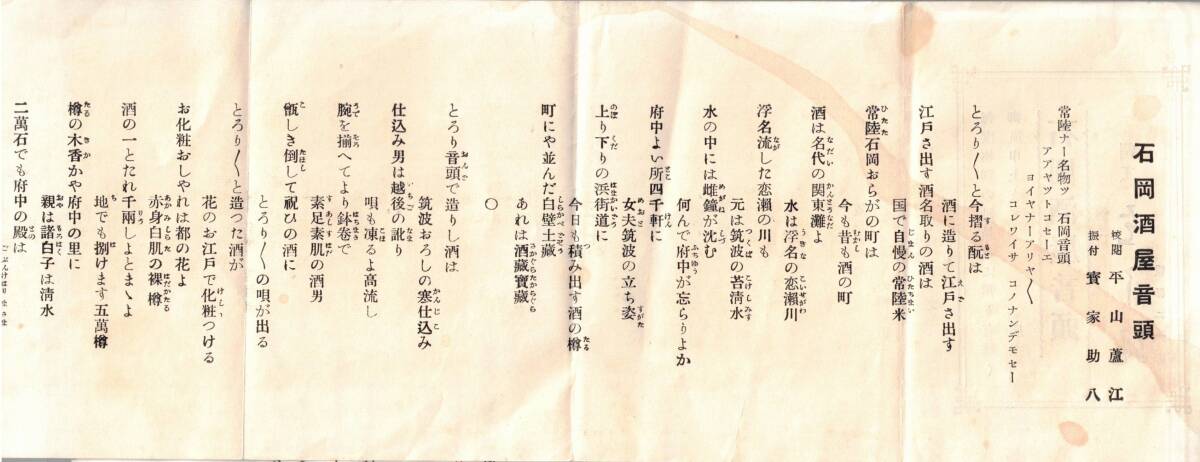 石岡酒屋音頭
校閲 平山蘆江
振付 賓家助八
常陸ナー名物ッ 石岡音頭
アアヤットコセーエ
ヨイヤナーアリヤ〳〵
コレワイサ コノナンデモセー
とろり〳〵と今摺る酛は
酒に造りて江戸さ出す
江戸さ出す酒名取りの酒は
国で自慢の常陸米
常陸石岡おらがの町は
今も昔も酒の町
酒は名代の関東灘よ
水は浮名の恋瀬川
浮名流した恋瀬の川も
元は筑波の苔清水
水の中には雌鐘が沈む
何んで府中が忘らりよか
府中よい所四千軒に
女夫筑波の立ち姿
上り下りの浜街道に
今日も積み出す酒の樽
町にや並んだ白壁土蔵
あれは酒藏寶藏
〇
とろり音頭で造りし酒は
筑波おろしの寒仕込み
仕込み男は越後の訛り
唄も凍るよ高流し
腕を揃へてより鉢卷で
素足素肌の酒男
甑しき倒して祝ひの酒に
とろり〳〵の唄が出る
とろり〳〵と造つた酒が
花のお江戸で化粧つける
お化粧おしやれは都の花よ
赤身白肌の裸樽
酒の一とたれ千兩しよとまゝよ
地でも捌けます五萬樽
樽の木香かや府中の里に
親は諸白子は淸水
二萬石でも府中の殿は